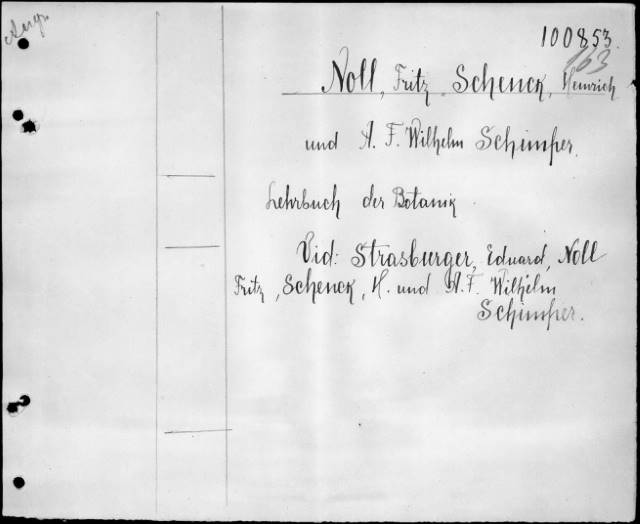 100853.
163
Noll, Fritz, Schenck, Heinrich
und A. F. Wilhelm Schimper.
Lehrbuch der Botanik
Vid: Strasburger, Eduard, Noll
Fritz, Schenck, H. und A. F. Wilhelm
Schimper.